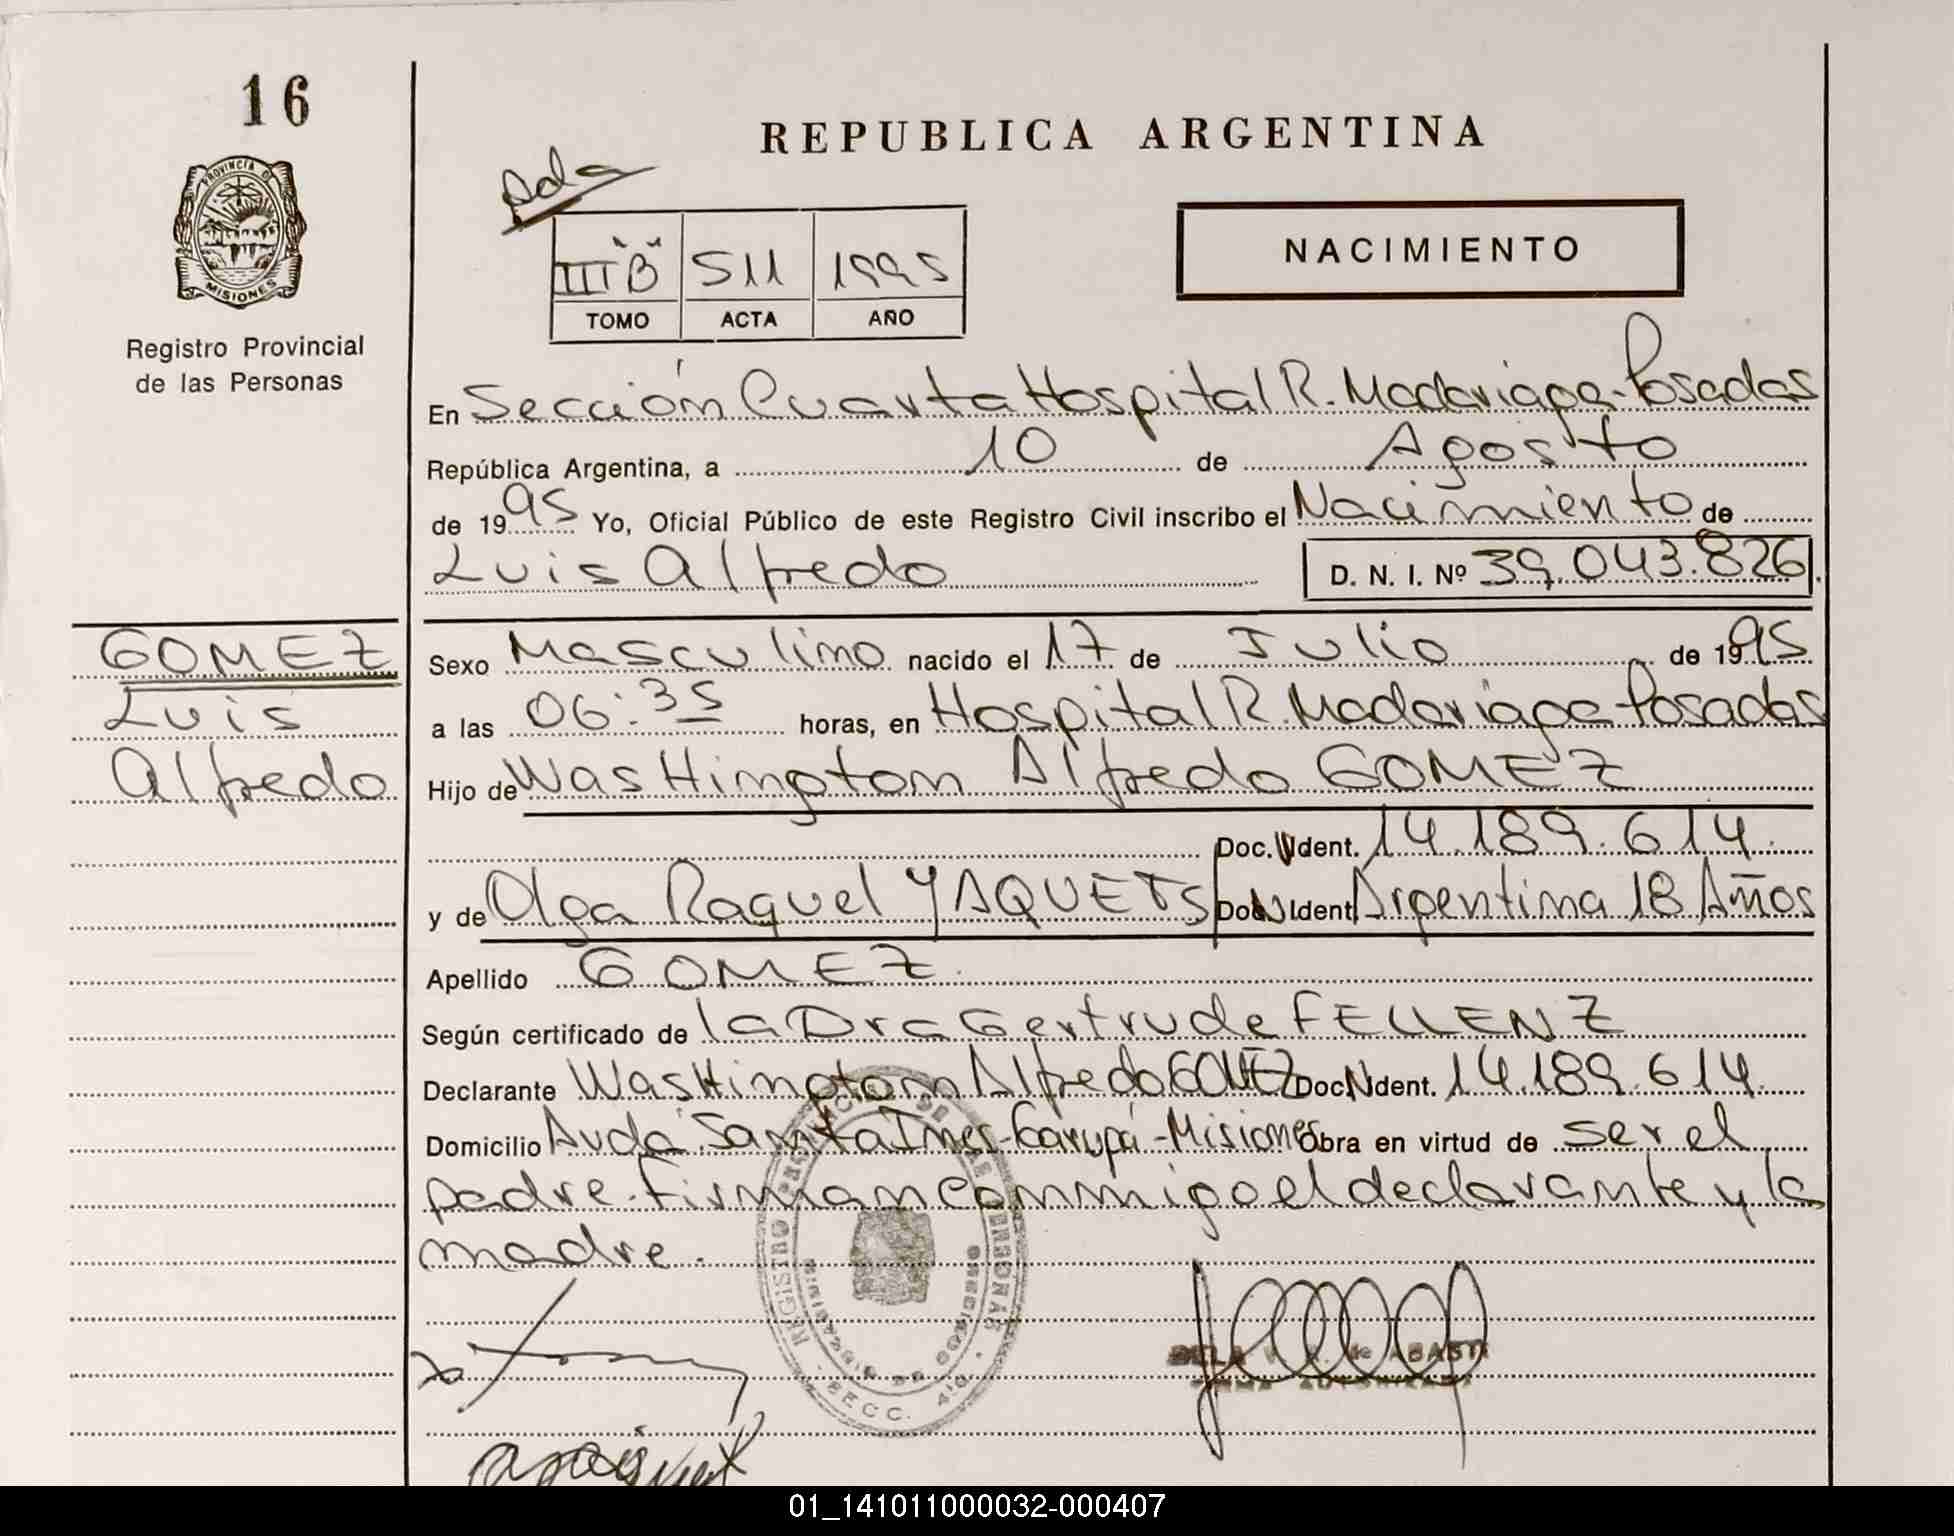 16
PROVINCIA DE
MISIONES
Registro Provincial
de las Personas
REPUBLICA ARGENTINA
NACIMIENTO
III "B" 511 1995
TOMO ACTA AÑO
En Sección Cuarta Hospital R. Madariaga-Posadas
República Argentina, a 10 de Agosto
de 1995 Yo, Oficial Público de este Registro Civil inscribo el Nacimiento de
Luis Alfredo D. N. I. Nº 39.043.826
GOMEZ
Luis
Alfredo
Sexo Masculino nacido el 17 de Julio de 1995
a las 06:35 horas, en Hospital R. Madariaga-Posadas
Hijo de WasHington Alfredo GOMEZ
Doc. Ident. 14.189.614.
y de Olga Raquel YAQUETS Doc. Ident Argentina 18 Años
Apellido GOMEZ.
Según certificado de la Dra Gertrude FELLENZ
Declarante WasHington Alfredo GOMEZ Doc. Ident. 14.189.614.
Domicilio Avda. Santa Ines-Garupá-Misiones Obra en virtud de ser el
padre. Firman conmigo el declarante y la
madre.
REGISTRO PROVINCIAL DE LAS PERSONAS
SECC. 4ta.
01_141011000032-000407